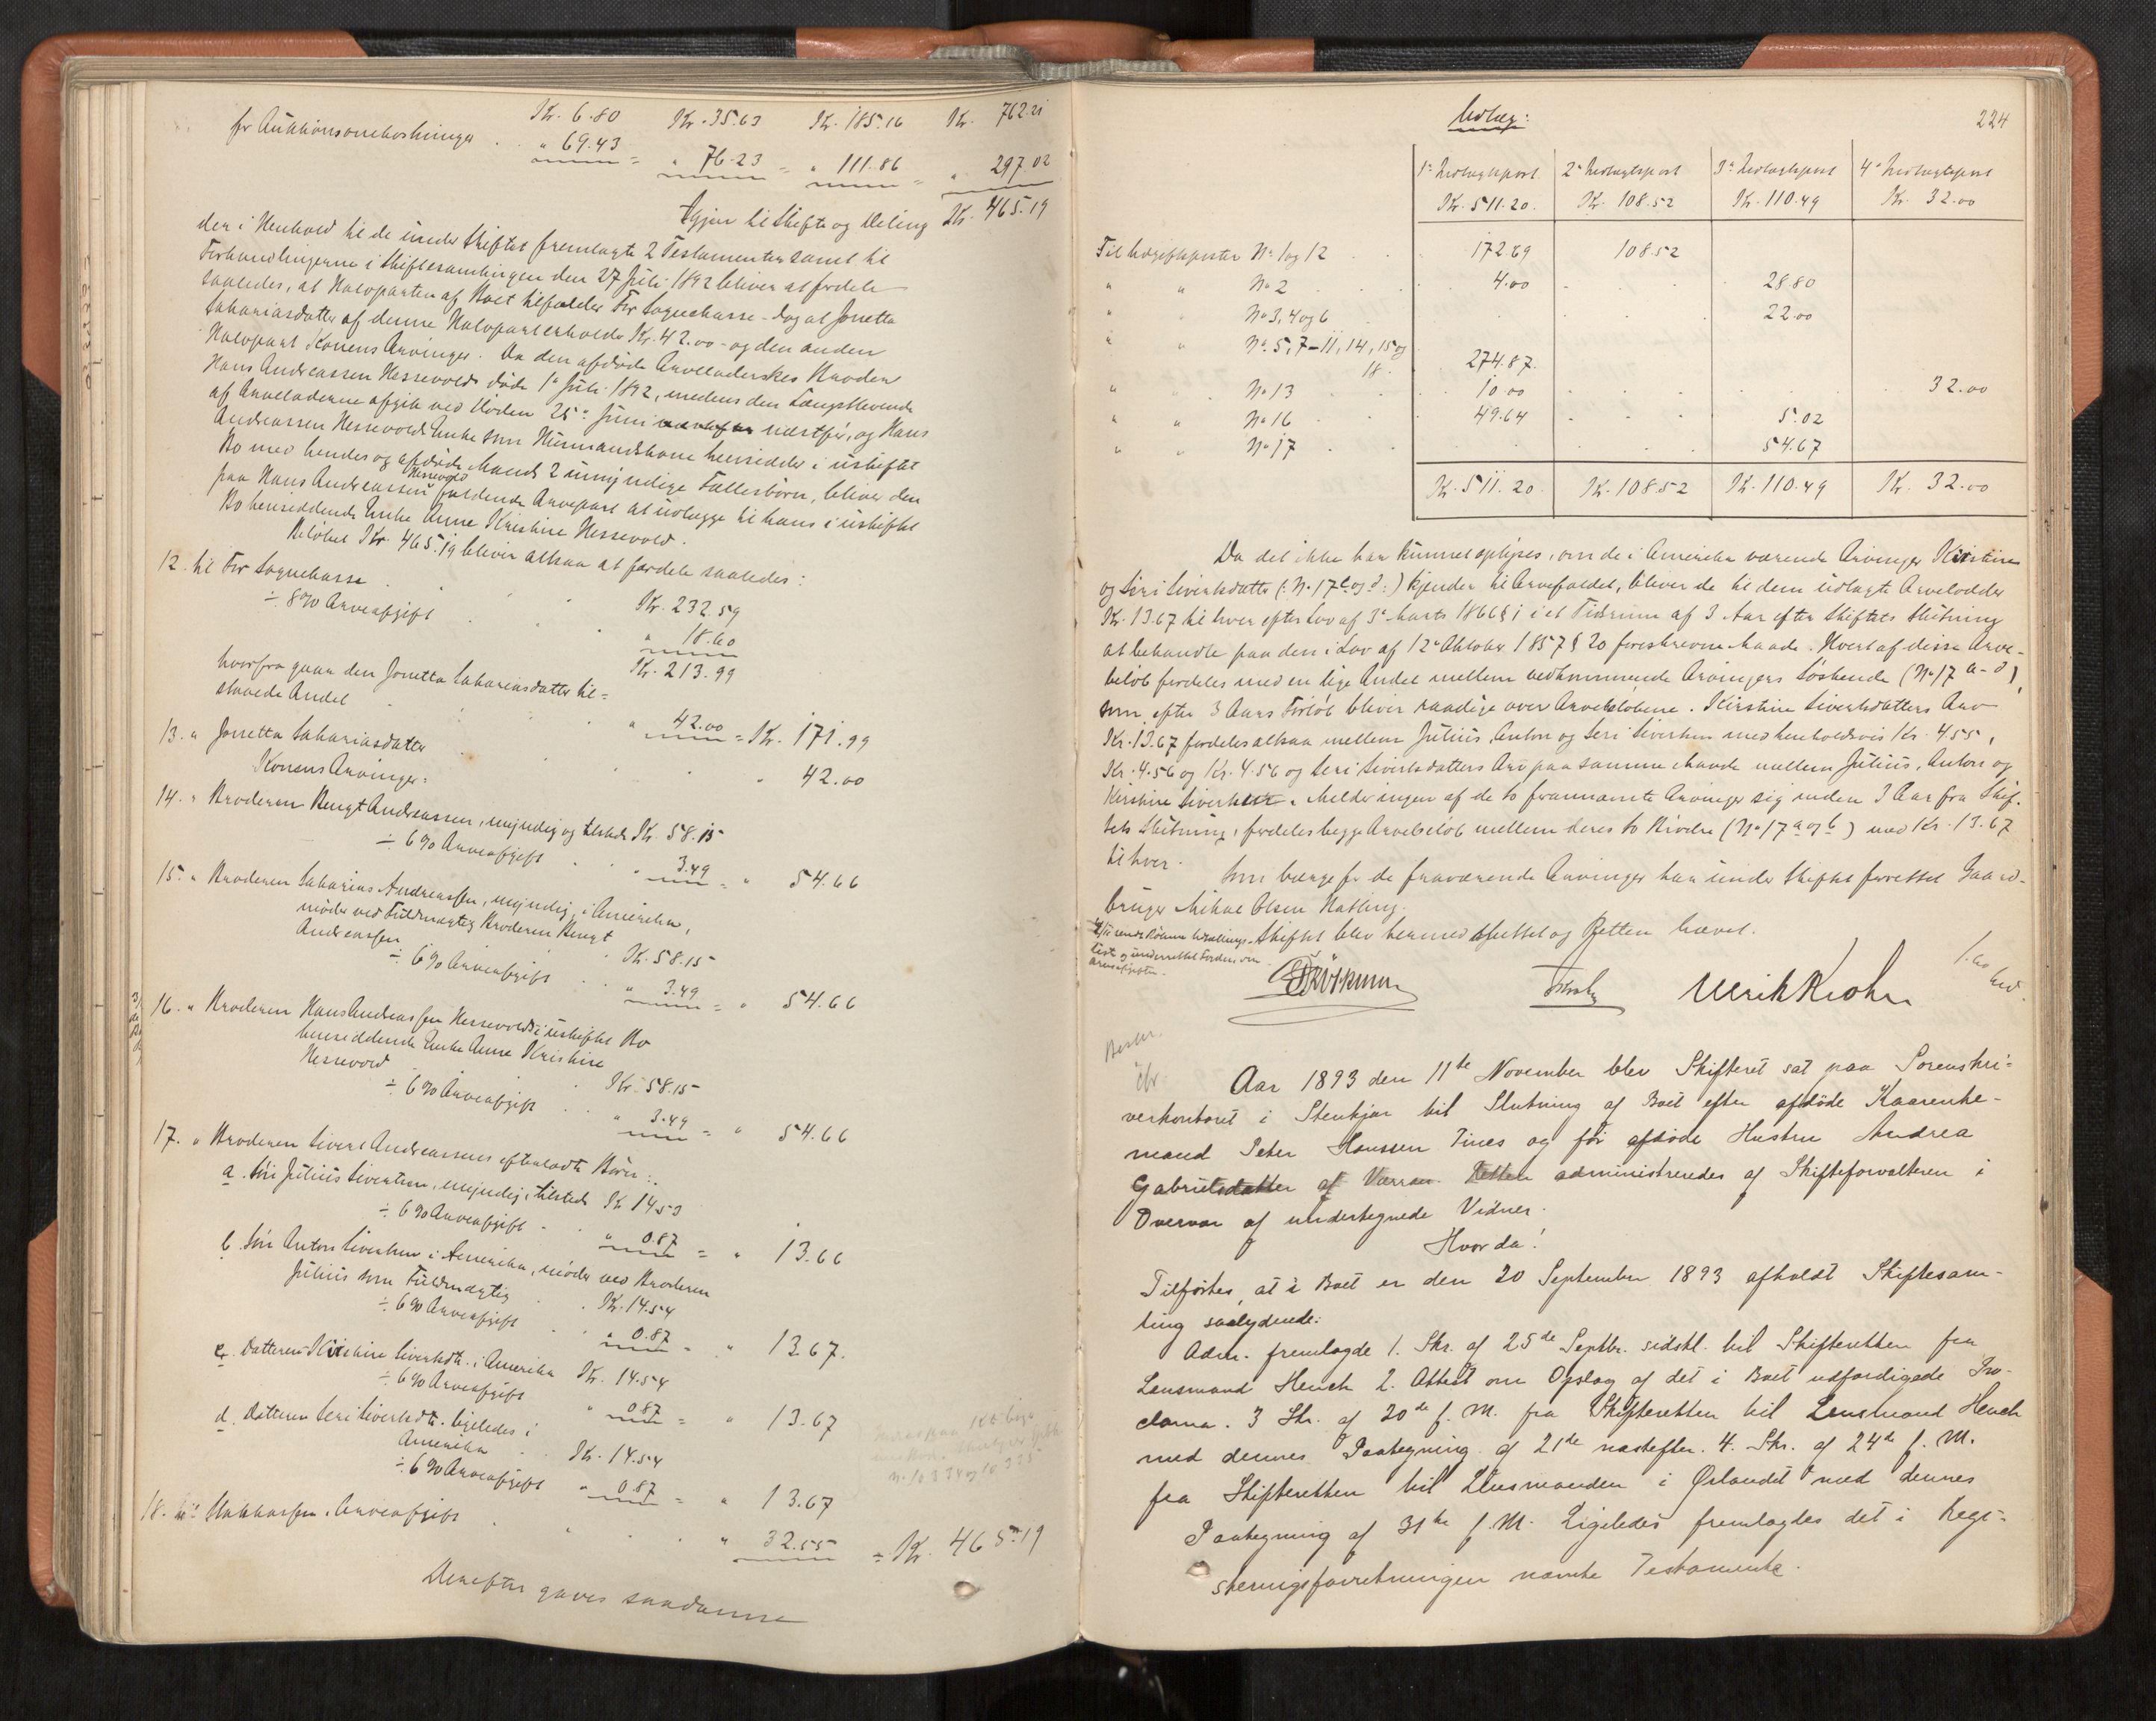 Kr. 6.80 Kr. 35.63 Kr. 185.16 Kr. 762.21
for Auktionsomkostninger . . " 69.43 = " 76.23 = " 111.86 = " 297.02
Igjen til Skifte og Deling Kr. 465.19
der i Henhold til de under Skiftet fremlagte 2 Testamenter samt til
Forhandlingerne i Skiftesamlingen den 27 Juli 1892 bliver at fordele
saaledes, at Halvparten af Boet tilfalder For Sognekasse - dog at Jonetta
Sakariasdatter af denne Halvpart erholder Kr. 42.00 - og den anden
Halvpart Konens Arvinger. Da den afdøde Arveladerskes Broder
Hans Andreassen Hessevold døde 1ste Juli 1892, medens den Længstlevende
af Arveladerne afgik ved Døden 25de Juni næstfør, og Hans
Andreassen Hessevolds Enke som Husmandskone hensidder i uskiftet
Bo med hendes og afdøde Mands 2 umyndige Fællesbørn, bliver den
paa Hans Andreassen Hessevold faldende Arvepart at udlægge til hans i uskiftet
Bo hensiddende Enke Anne Kristine Hessevold.
Beløbet Kr. 465.19 bliver altsaa at fordele saaledes:
12. til For Sognekasse . . . Kr. 232.59
÷ 8% Arveafgift . . " 18.60
Kr. 213.99
hvorfra gaar den Jonetta Sakariasdatter til=
staaede Andel . . . " 42.00 = Kr. 171.99
13. " Jonetta Sakariasdatter . . . . " 42.00
Konens Arvinger:
14. " Broderen Bengt Andreassen, myndig og tilstede Kr. 58.15
÷ 6% Arveafgift . . " 3.49 = " 54.66
15. " Broderen Sakarias Andreassen, myndig, i Amerika,
møder ved Fuldmægtig Broderen Bengt
Andreassen . . Kr. 58.15
÷ 6% Arveafgift . . " 3.49 = " 54.66
16. " Broderen Hans Andreassen Hessevolds i uskiftet Bo
hensiddende Enke Anne Kristine
Hessevold . . Kr. 58.15
÷ 6% Arveafgift . . " 3.49 = " 54.66
17. " Broderen Sivert Andreassens efterladte Børn:
a. Søn Julius Sivertsen, myndig, tilstede Kr 14.53
÷ 6% Arveafgift . " 0.87 = " 13.66
b. Søn Anton Sivertsen i Amerika, møder ved Broderen
Julius som Fuldmægtig . Kr. 14.54
÷ 6% Arveafgift . . " 0.87 = " 13.67.
c. Datteren Kirstine Sivertsdtr. i Amerika Kr. 14.54
÷ 6% Arveafgift " 0.87 = " 13.67
d. Datteren Seri Sivertsdtr. ligeledes i
Amerika . . Kr. 14.54
÷ 6% Arveafgift " 0.87 = " 13.67
18. til Statskassen, Arveafgift . . . " 32.55 = Kr. 465.19
Derefter gaves saadanne
Udlæg: 224
1ste Indtægtspost. 2den Indtægtspost 3die Indtægtspost 4de Indtægtspost
Kr. 511.20. Kr. 108.52 Kr. 110.49 Kr. 32.00
Til Udgiftsposter No 1 og 12 . . 172.69 108.52
" " No 2 . . . 4.00 . . 28.80
" " No 3, 4 og 6 . . . . 22.00
" " No. 5, 7-11, 14, 15 og
18. 274.87.
" " No 13 . . 10.00 . . . . 32.00
" " No 16 . . 49.64 . . 5.02
" " No 17 . . . . 54.67
Kr. 511.20. Kr. 108.52 Kr. 110.49 Kr. 32.00
Da det ikke har kunnet oplyses, om de i Amerika værende Arvinger Kirstine
og Seri Sivertsdatter (: No 17 c og d :) kjender til Arvefaldet, bliver de til dem udlagte Arvelodder
Kr. 13.67 til hver efter Lov af 3die Marts 1866 § 1 i et Tidsrum af 3 Aar efter Skiftets Slutning
at behandle paa den i Lov af 12te Oktober 1857 § 20 foreskrevne Maade. Hvert af disse Arve-
beløb fordeles med en lige Andel mellem vedkommende Arvingers Søskende (No 17 a-d),
som efter 3 Aars Forløb bliver raadige over Arvebeløbene. Kirstine Sivertsdatters Arv
Kr. 13.67 fordeles altsaa mellem Julius, Anton og Seri Sivertsen med henholdsvis Kr. 4.55,
Kr. 4.56 og Kr. 4.56 og Seri Sivertsdatters Arv paa samme Maade mellem Julius, Anton og
Kirstine Sivertsen. Melder ingen af de to førnævnte Arvinger sig inden 3 Aar fra Skif-
tets Slutning, fordeles begge Arvebeløb mellem deres to Brødre (No 17 a og b) med Kr. 13.67
til hver.
Som Værge for de fraværende Arvinger har under Skiftet forrettet Gaard-
bruger Mikal Olsen Hatling.
Skiftet blev hermed sluttet og Retten hævet.
Ulrik Krohn
Aar 1893 den 11te November blev Skifteret sat paa Sorenskri-
verkontoret i Stenkjær til Slutning af Boet efter afdøde Kaarenke-
mand Peter Hanssen Tines og før afdøde Hustru Andrea
Gabrielsdatter af Værran. Retten administreredes af Skifteforvalteren i
Overvær af undertegnede Vidner.
Hvorda!
Tilførtes, at i Boet er den 20 September 1893 afholdt Skiftesam-
ling saalydende:
Adm. fremlagde 1. Skr. af 25de Septbr. sidstl. til Skifteretten fra
Lensmand Hench 2. Attest om Opslag af det i Boet udfærdigede Pro-
clama. 3 Skr. af 20de f. M. fra Skifteretten til Lensmand Hench
med dennes Paategning af 21de næstefter. 4. Skr. af 24de f. M.
fra Skifteretten til Lensmanden i Ørlandet med dennes
Paategning af 31te f. M. Ligeledes fremlagdes det i Regi-
streringsforretningen nævnte Testamente.